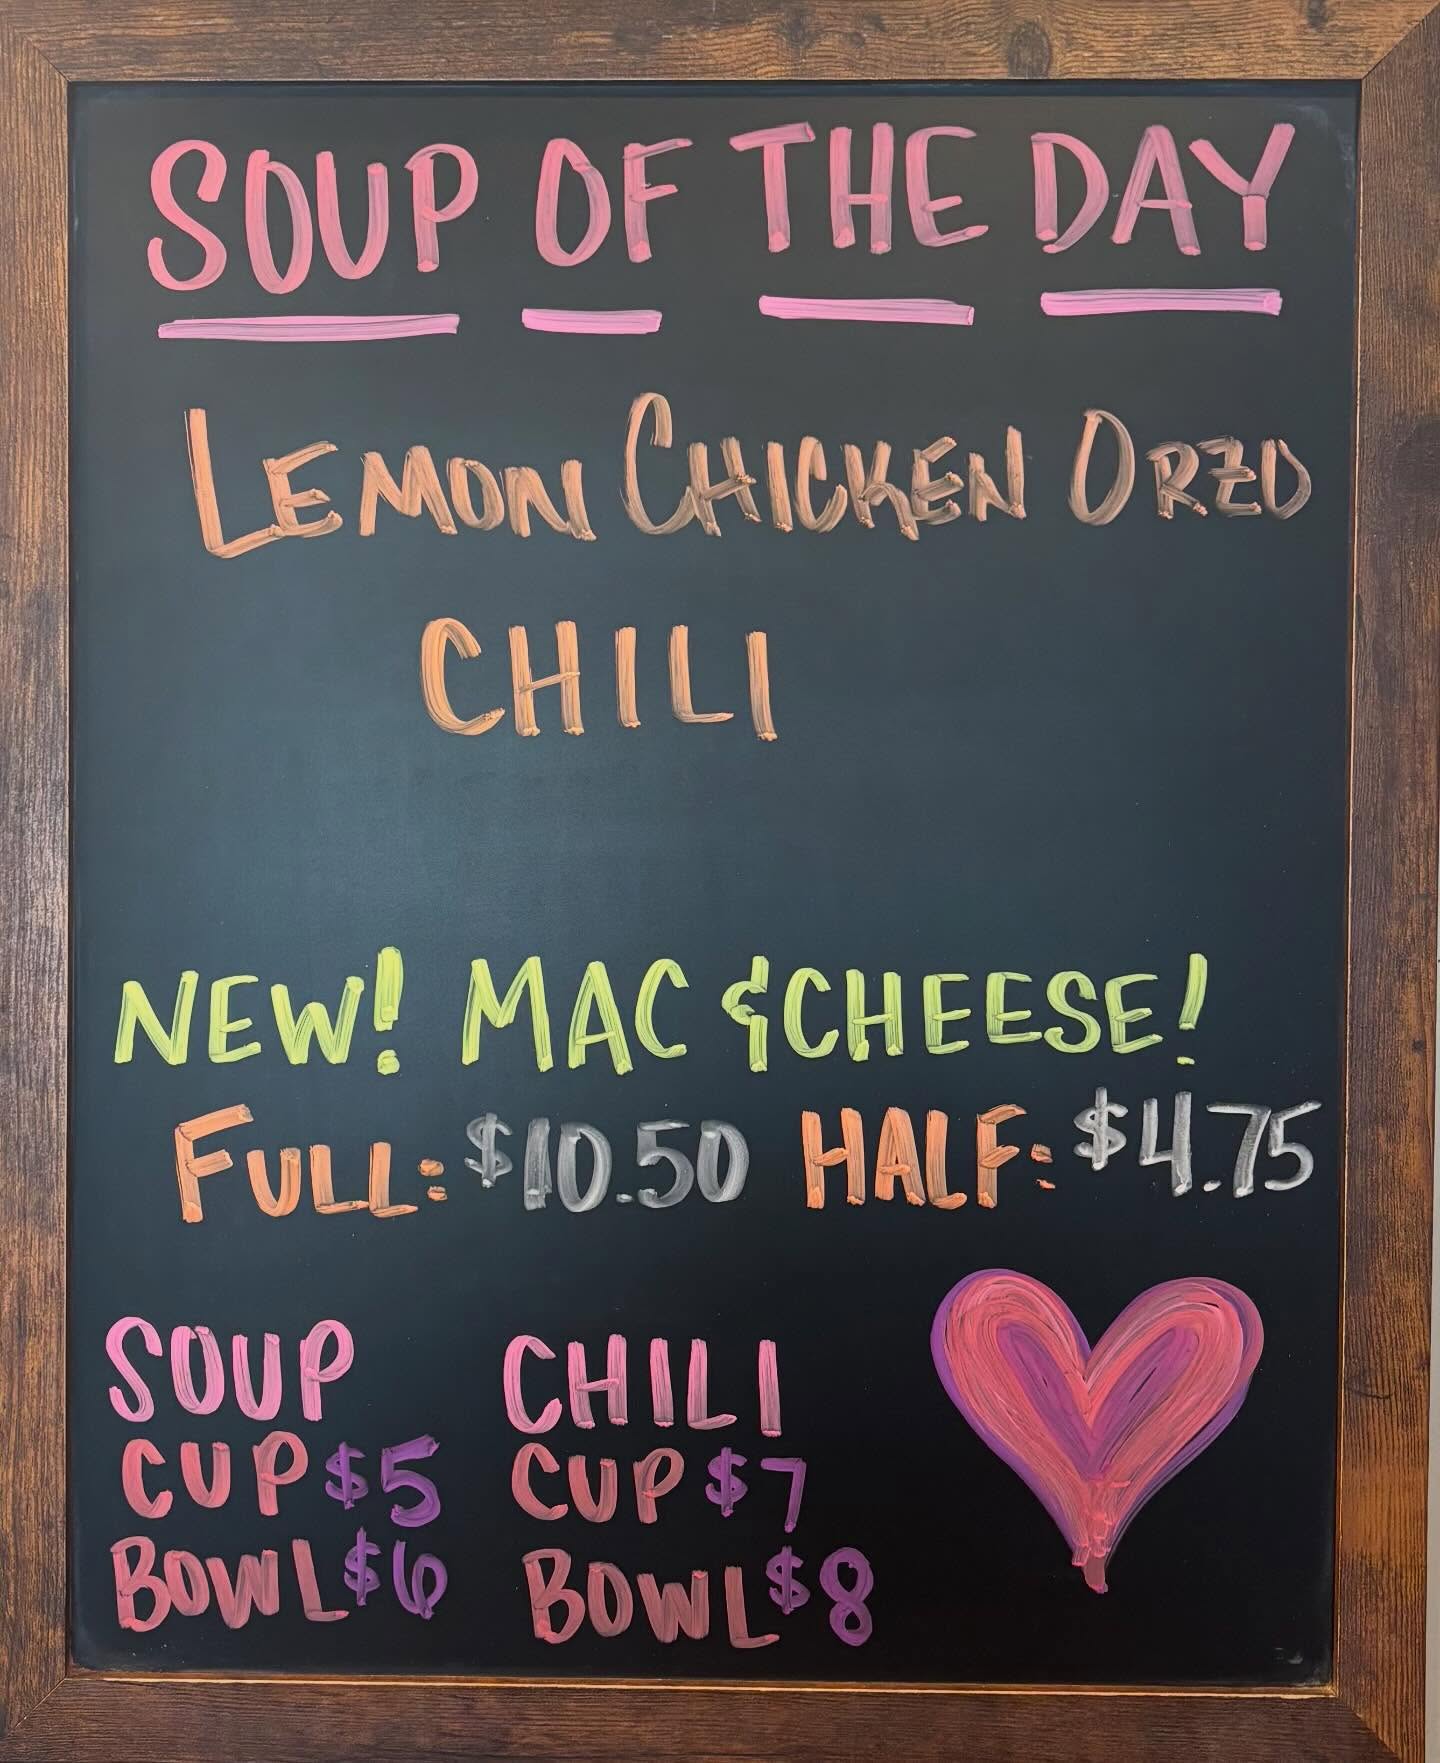 SOUP OF THE DAY
LEMON CHICKEN ORZO
CHILI
NEW! MAC & CHEESE!
FULL: $10.50 HALF: $4.75
SOUP CHILI
CUP $5 CUP $7
BOWL $6 BOWL $8